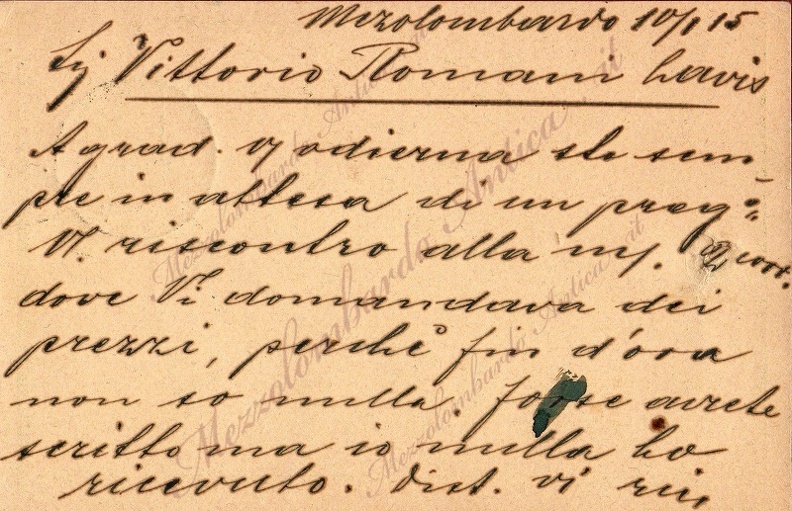 Mezolombardo 10/1 15
Sig Vittorio Romani Lavis
A grad. Vs odierna sto sem-
pre in attesa di un preg.º
Vs. riscontro alla mj. 2 corr.
dove Vi domandava dei
prezzi, perchè fin d'ora
non so nulla. forse avrete
scritto ma io nulla ho
ricevuto. Dist. vi riv
Mezzolombardo Antica it
Mezzolombardo Antica it
Mezzolombardo Antica it